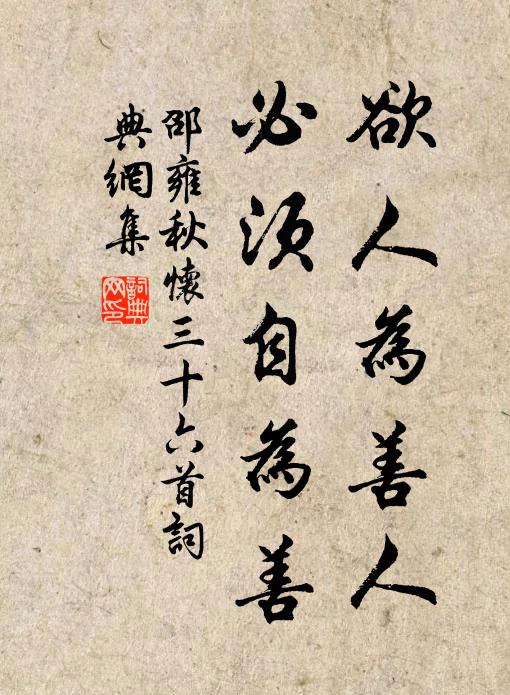 欲人為善人
必須自為善
邵雍秋懷三十六首詞
典網集
詞典網印